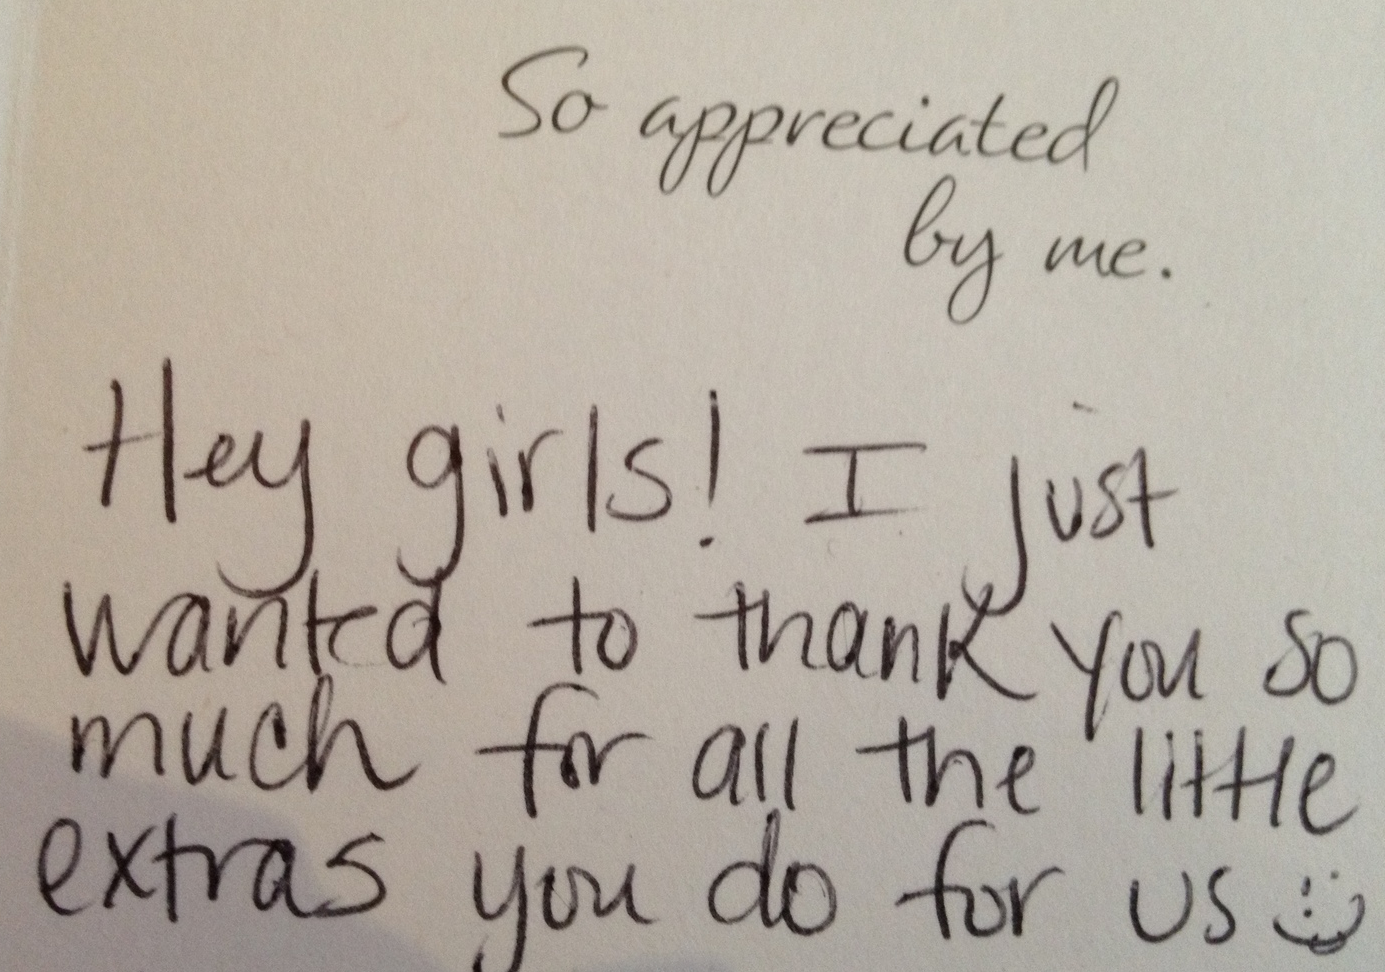 So appreciated
by me.
Hey girls! I just
wanted to thank you so
much for all the little
extras you do for us :)